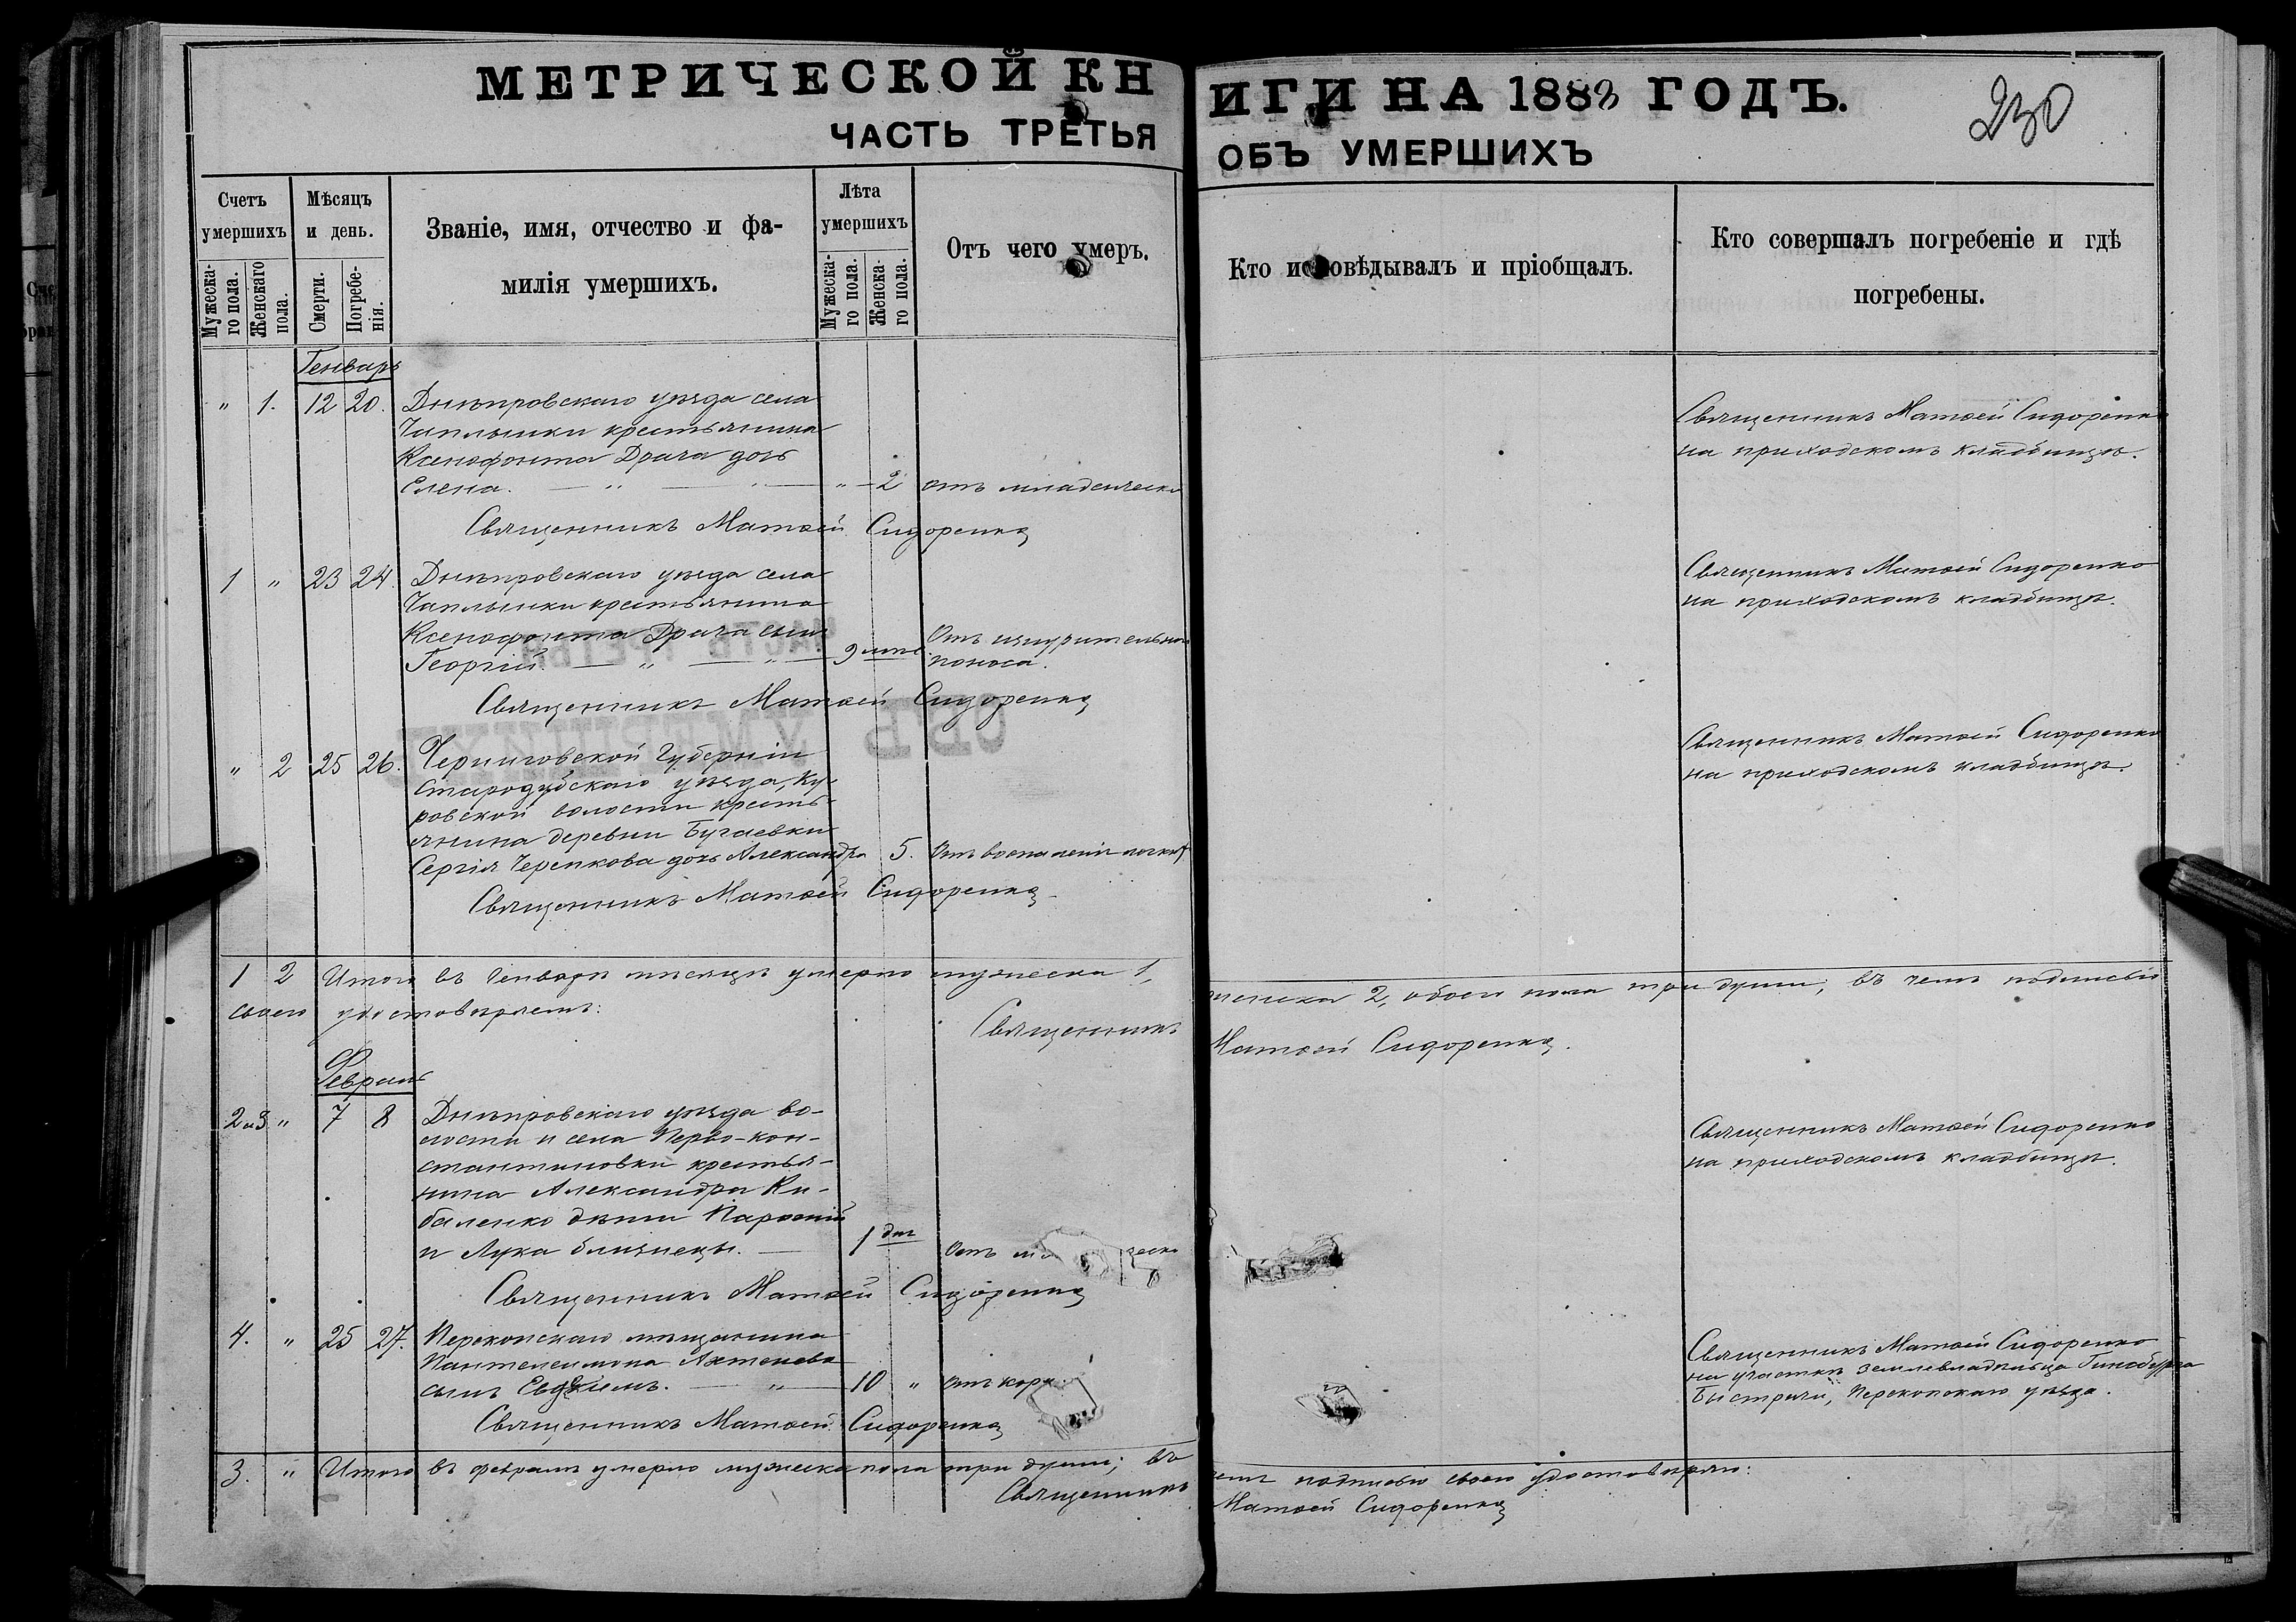 МЕТРИЧЕСКОЙ КН
ИГИ НА 1888 ГОДЪ.
230
ЧАСТЬ ТРЕТЬЯ
ОБЪ УМЕРШИХЪ
Счетъ умершихъ
Мѣсяцъ и день.
Званіе, имя, отчество и фа-
милія умершихъ.
Лѣта умершихъ
Отъ чего умеръ.
Кто исповѣдывалъ и пріобщалъ.
Кто совершалъ погребеніе и гдѣ
погребены.
Мужеска-го пола.
Женскаго пола.
Смерти.
Погребе-нія.
Мужеска-го пола.
Женска-го пола.
Генварь
" 1. 12 20. Днѣпровскаго уѣзда села
Чаплынки крестьянина
Ксенофонта Драча дочь
Елена. — " — " — " — 2 отъ младенческ
Священникъ Матѳей Сидоренко
на приходскомъ кладбищѣ.
Священникъ Матѳей Сидоренко
1 " 23 24. Днѣпровскаго уѣзда села
Чаплынки крестьянина
Ксенофонта Драча сынъ
Георгій. — " — " — 9 лѣтъ Отъ изнурительнаго
поноса.
Священникъ Матѳей Сидоренко
на приходскомъ кладбищѣ.
Священникъ Матѳей Сидоренко
" 2 25 26. Черниговской Губерніи
Стародубскаго уѣзда, Ку-
ровской волости кресть-
янина деревни Бугаевки
Сергія Черепкова дочь Александра 5. Отъ воспаленія легкихъ
Священникъ Матѳей Сидоренко
на приходскомъ кладбищѣ.
Священникъ Матѳей Сидоренко
1 2 Итого въ Генварѣ мѣсяцѣ умерло мужеска 1,
женска 2, обоего пола три души; въ чемъ подписью
своею удостовѣряемъ:
Священникъ
Матѳей Сидоренко.
Февраль
2 и 3 " 7 8 Днѣпровскаго уѣзда во-
лости и села Перво-кон-
стантиновки крестья-
нина Александра Ки-
баленко дѣти Парѳеній
и Лука близнецы. — 1 дня Отъ
Священникъ Матѳей Сидоренко
на приходскомъ кладбищѣ.
Священникъ Матѳей Сидоренко
4. " 25 27. Перекопскаго мѣщанина
Пантелеимона
сынъ Евдокимъ. — " — 10 " Отъ кор
Священникъ Матѳей Сидоренко
на участкѣ землевладѣльца
Перекопскаго уѣзда.
Священникъ Матѳей Сидоренко
3. " Итого въ февралѣ умерло мужеска пола три души; въ
чемъ подписью своею удостовѣряю:
Священникъ
Матѳей Сидоренко